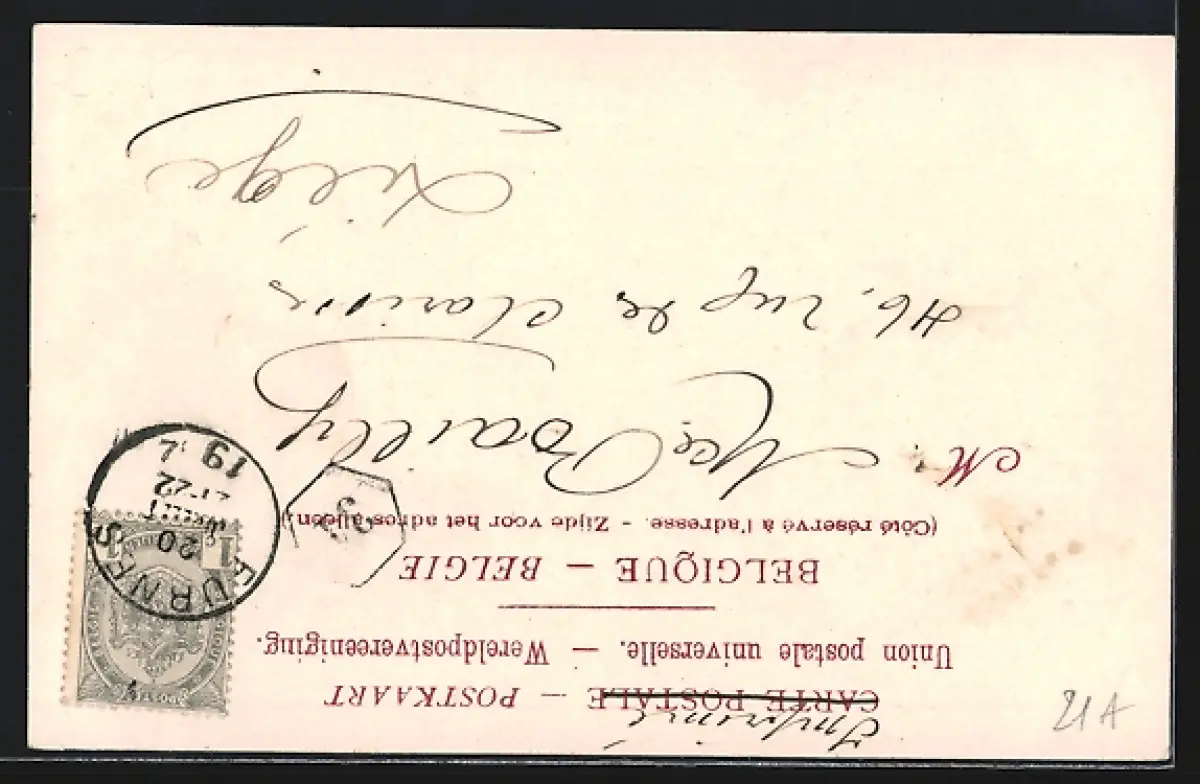 Imprimé
CARTE POSTALE — POSTKAART
Union postale universelle. — Wereldpostvereeniging.
BELGIQUE — BELGIE
(Côté réservé à l'adresse. - Zijde voor het adres alleen)
M. Bailly
46, rue des Clarisses
Liège
FURNES
20
22
19
1
21A